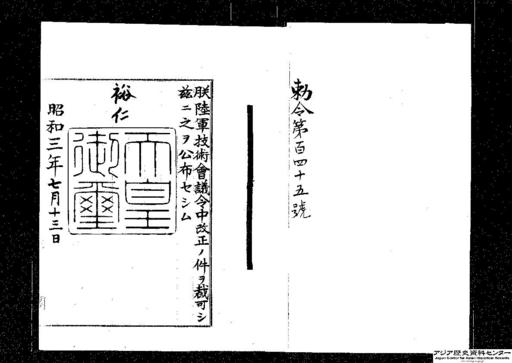 勅令第百四十五號
朕陸軍技術會議令中改正ノ件ヲ裁可シ
茲ニ之ヲ公布セシム
裕仁
天皇
御璽
昭和三年七月十三日
アジア歴史資料センター
Japan Center for Asian Historical Records